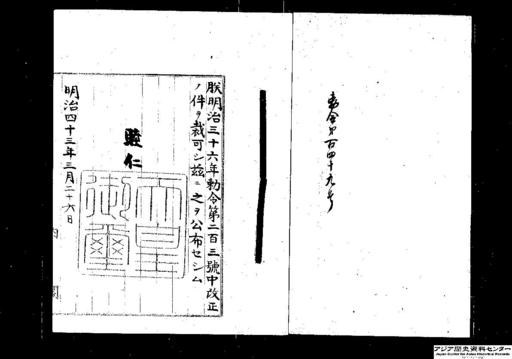 勅令第百四十九号
朕明治三十六年勅令第二百三號中改正
ノ件ヲ裁可シ茲ニ之ヲ公布セシム
睦仁
天皇
御璽
明治四十三年三月二十六日
内閣
アジア歴史資料センター
Japan Center for Asian Historical Records